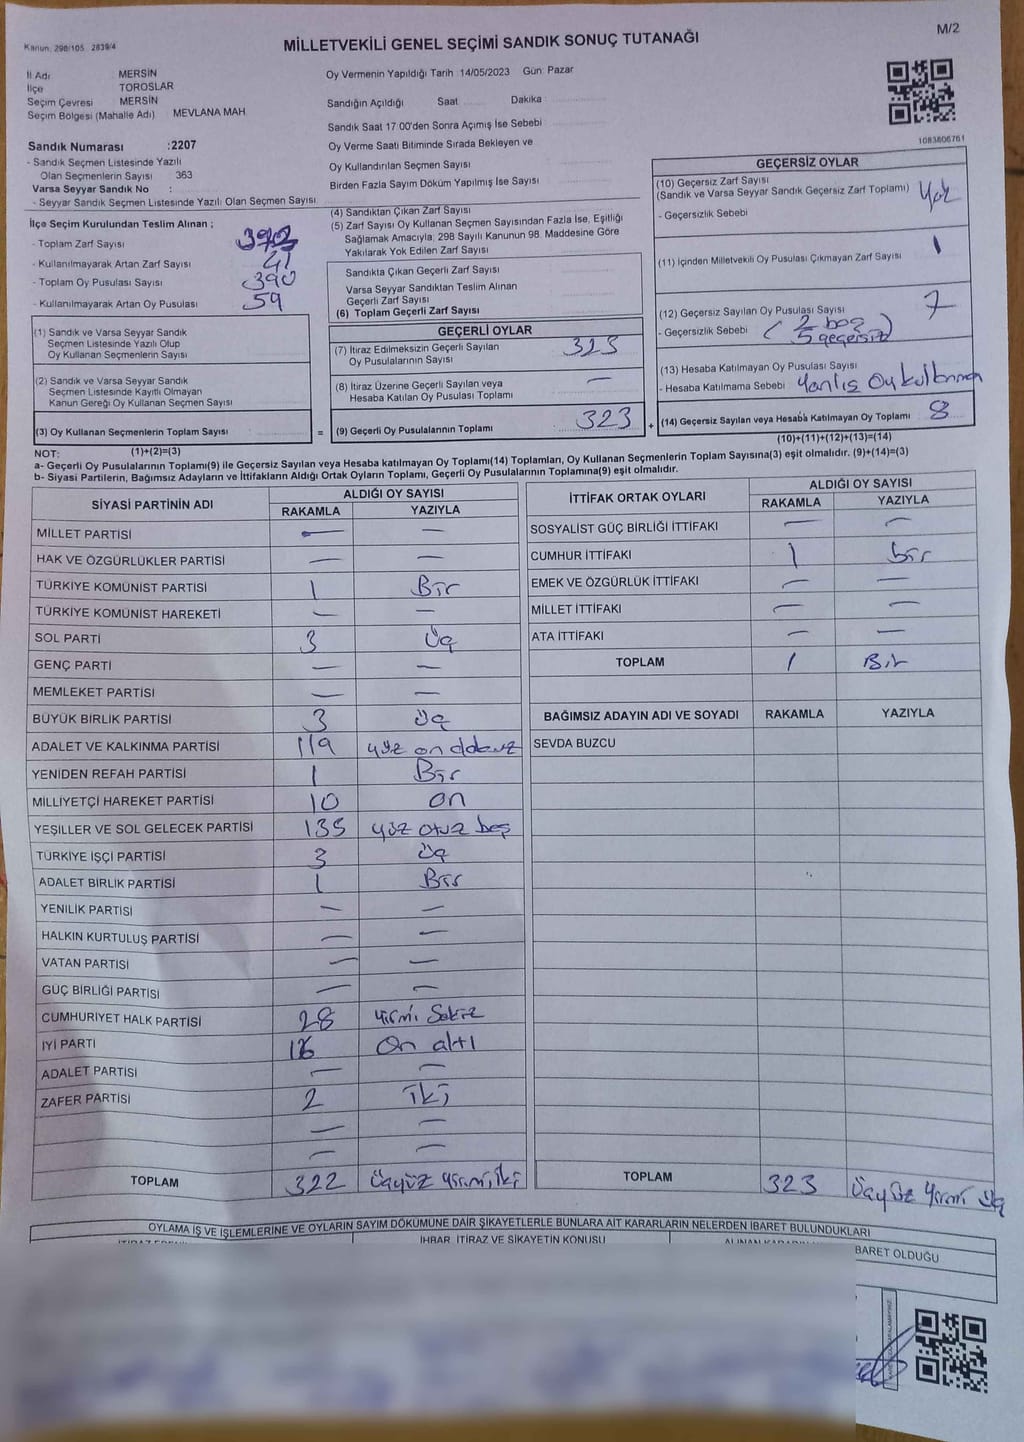 Kanun: 298/105 2839/4
MİLLETVEKİLİ GENEL SEÇİMİ SANDIK SONUÇ TUTANAĞI
M/2
İl Adı MERSİN
İlçe TOROSLAR
Seçim Çevresi MERSİN
Seçim Bölgesi (Mahalle Adı) MEVLANA MAH
Sandık Numarası :2207
- Sandık Seçmen Listesinde Yazılı
Olan Seçmenlerin Sayısı 363
Varsa Seyyar Sandık No :
- Seyyar Sandık Seçmen Listesinde Yazılı Olan Seçmen Sayısı
Oy Vermenin Yapıldığı Tarih :14/05/2023 Gün: Pazar
Sandığın Açıldığı Saat Dakika
Sandık Saat 17:00'den Sonra Açımış İse Sebebi
Oy Verme Saati Bitiminde Sırada Bekleyen ve
Oy Kullandırılan Seçmen Sayısı
Birden Fazla Sayım Döküm Yapılmış İse Sayısı
1083606761
İlçe Seçim Kurulundan Teslim Alınan ;
- Toplam Zarf Sayısı
- Kullanılmayarak Artan Zarf Sayısı 41
- Toplam Oy Pusulası Sayısı 390
- Kullanılmayarak Artan Oy Pusulası 59
(1) Sandık ve Varsa Seyyar Sandık
Seçmen Listesinde Yazılı Olup
Oy Kullanan Seçmenlerin Sayısı
(2) Sandık ve Varsa Seyyar Sandık
Seçmen Listesinde Kayıtlı Olmayan
Kanun Gereği Oy Kullanan Seçmen Sayısı
(3) Oy Kullanan Seçmenlerin Toplam Sayısı =
(4) Sandıktan Çıkan Zarf Sayısı
(5) Zarf Sayısı Oy Kullanan Seçmen Sayısından Fazla İse, Eşitliği
Sağlamak Amacıyla, 298 Sayılı Kanunun 98. Maddesine Göre
Yakılarak Yok Edilen Zarf Sayısı
Sandıkta Çıkan Geçerli Zarf Sayısı
Varsa Seyyar Sandıktan Teslim Alınan
Geçerli Zarf Sayısı
(6) Toplam Geçerli Zarf Sayısı
GEÇERLİ OYLAR
(7) İtiraz Edilmeksizin Geçerli Sayılan
Oy Pusulalarının Sayısı 323
(8) İtiraz Üzerine Geçerli Sayılan veya
Hesaba Katılan Oy Pusulası Toplamı —
(9) Geçerli Oy Pusulalarının Toplamı 323 +
GEÇERSİZ OYLAR
(10) Geçersiz Zarf Sayısı
(Sandık ve Varsa Seyyar Sandık Geçersiz Zarf Toplamı) Yok
- Geçersizlik Sebebi
(11) İçinden Milletvekili Oy Pusulası Çıkmayan Zarf Sayısı 1
(12) Geçersiz Sayılan Oy Pusulası Sayısı 7
- Geçersizlik Sebebi ( 2 boş
5 geçersiz)
(13) Hesaba Katılmayan Oy Pusulası Sayısı
- Hesaba Katılmama Sebebi Yanlış Oy kullanma
(14) Geçersiz Sayılan veya Hesaba Katılmayan Oy Toplamı 8
NOT: (1)+(2)=(3) (10)+(11)+(12)+(13)=(14)
a- Geçerli Oy Pusulalarının Toplamı(9) ile Geçersiz Sayılan veya Hesaba katılmayan Oy Toplamı(14) Toplamları, Oy Kullanan Seçmenlerin Toplam Sayısına(3) eşit olmalıdır. (9)+(14)=(3)
b- Siyasi Partilerin, Bağımsız Adayların ve İttifakların Aldığı Ortak Oyların Toplamı, Geçerli Oy Pusulalarının Toplamına(9) eşit olmalıdır.
SİYASİ PARTİNİN ADI ALDIĞI OY SAYISI
RAKAMLA YAZIYLA
MİLLET PARTİSİ — —
HAK VE ÖZGÜRLÜKLER PARTİSİ — —
TÜRKİYE KOMÜNİST PARTİSİ 1 Bir
TÜRKİYE KOMÜNİST HAREKETİ — —
SOL PARTİ 3 Üç
GENÇ PARTİ — —
MEMLEKET PARTİSİ — —
BÜYÜK BİRLİK PARTİSİ 3 üç
ADALET VE KALKINMA PARTİSİ 119 yüz on dokuz
YENİDEN REFAH PARTİSİ 1 Bir
MİLLİYETÇİ HAREKET PARTİSİ 10 on
YEŞİLLER VE SOL GELECEK PARTİSİ 135 yüz otuz beş
TÜRKİYE İŞÇİ PARTİSİ 3 üç
ADALET BİRLİK PARTİSİ 1 Bir
YENİLİK PARTİSİ — —
HALKIN KURTULUŞ PARTİSİ — —
VATAN PARTİSİ — —
GÜÇ BİRLİĞİ PARTİSİ — —
CUMHURİYET HALK PARTİSİ 28 Yirmi Sekiz
İYİ PARTİ 16 On altı
ADALET PARTİSİ — —
ZAFER PARTİSİ 2 iki
— —
— —
TOPLAM 322 Üçyüz yirmi iki
İTTİFAK ORTAK OYLARI ALDIĞI OY SAYISI
RAKAMLA YAZIYLA
SOSYALİST GÜÇ BİRLİĞİ İTTİFAKI — —
CUMHUR İTTİFAKI 1 bir
EMEK VE ÖZGÜRLÜK İTTİFAKI — —
MİLLET İTTİFAKI — —
ATA İTTİFAKI — —
TOPLAM 1 Bir
BAĞIMSIZ ADAYIN ADI VE SOYADI RAKAMLA YAZIYLA
SEVDA BUZCU
TOPLAM 323 Üçyüz yirmi üç
OYLAMA İŞ VE İŞLEMLERİNE VE OYLARIN SAYIM DÖKÜMÜNE DAİR ŞİKAYETLERLE BUNLARA AİT KARARLARIN NELERDEN İBARET BULUNDUKLARI
İHBAR, İTİRAZ VE ŞİKAYETİN KONUSU
BARET OLDUĞU